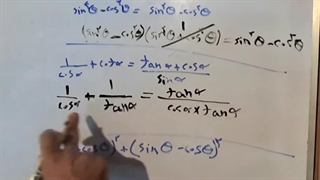 sin⁴θ - cos⁴θ = sin²θ - cos²θ
(sin²θ - cos²θ)(sin²θ + cos²θ) = sin²θ - cos²θ
1/cosα + cotα = (tanα + cosα)/sinα
1/cosα + 1/tanα = tanα/(cosα × tanα)
cosθ)² + (sinθ - cosθ)²